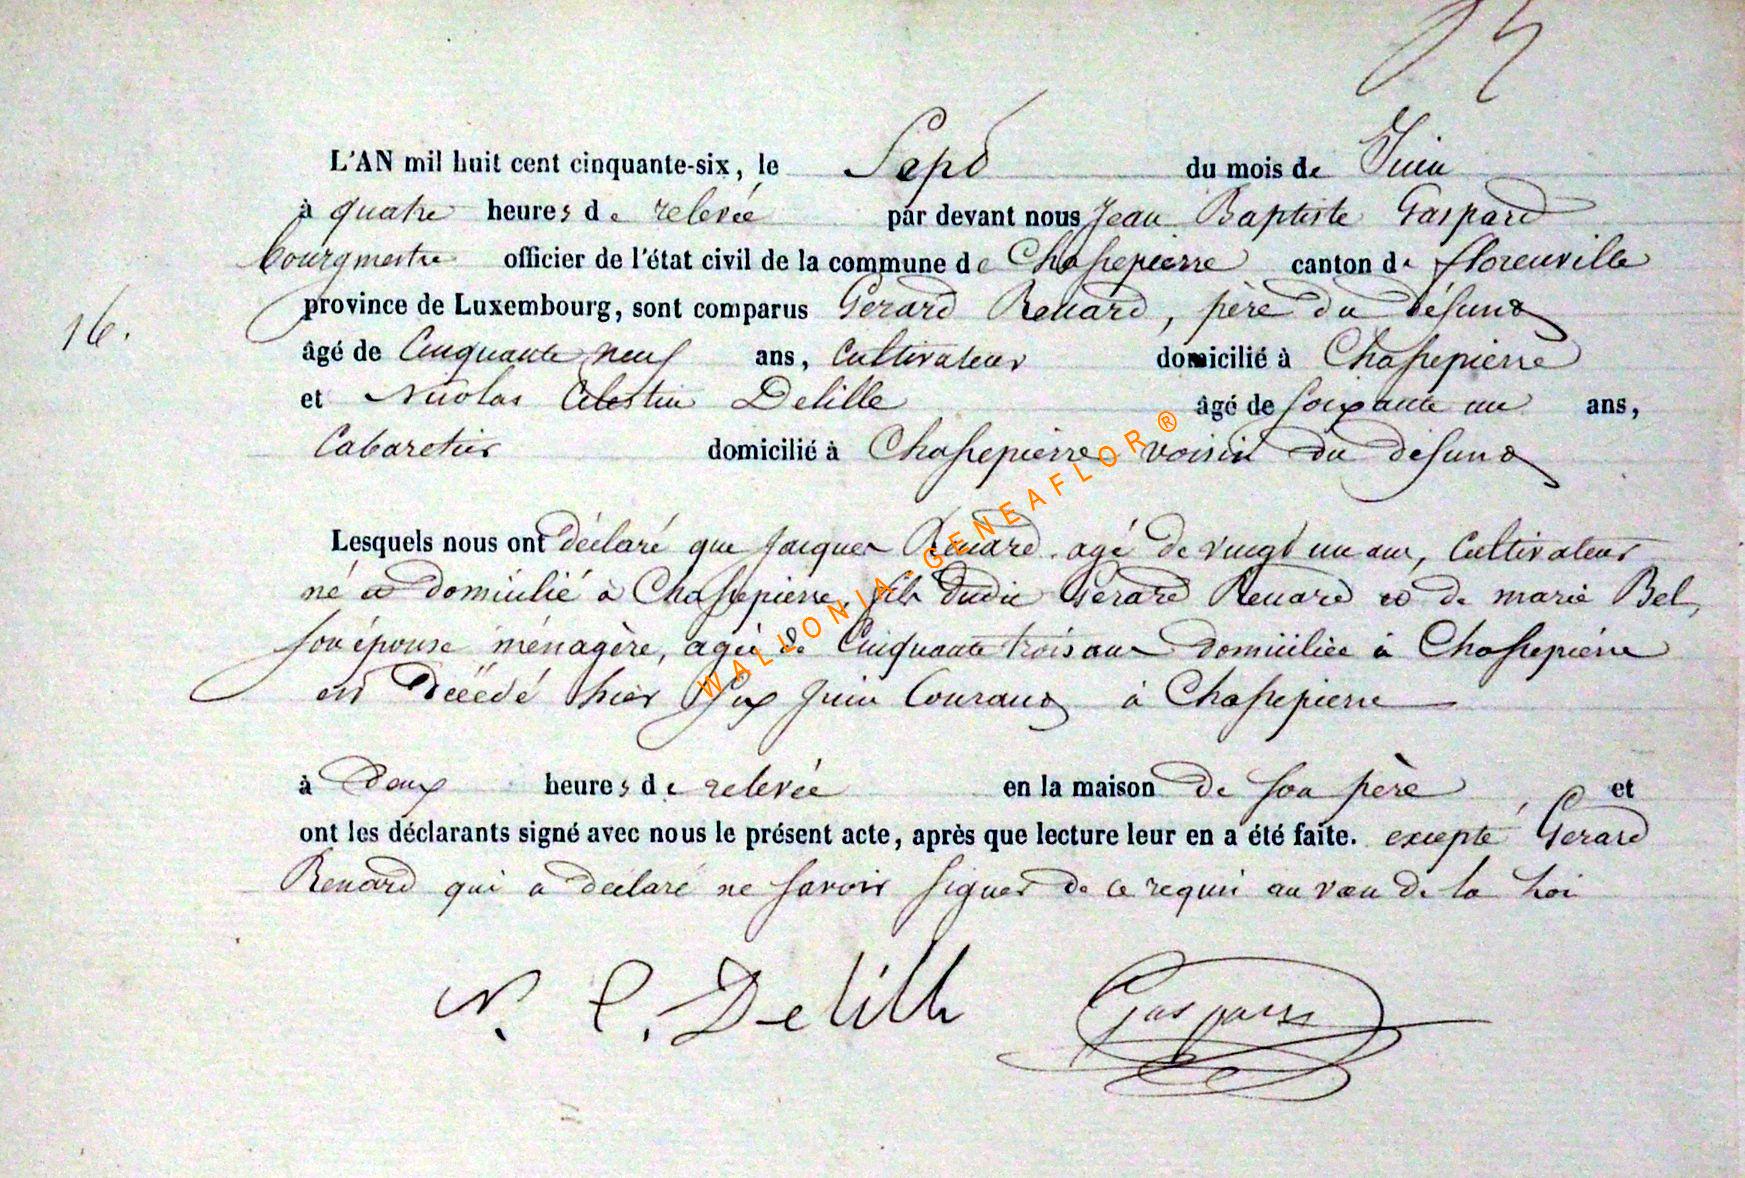 L'AN mil huit cent cinquante-six, le Sept du mois de Juin
à quatre heures de relevée par devant nous Jean Baptiste Gaspard
bourgmestre officier de l'état civil de la commune de Chassepierre canton de florenville
province de Luxembourg, sont comparus Gerard Renard, père du défunt
16.
âgé de Cinquante neuf ans, Cultivateur domicilié à Chassepierre
et Nicolas Celestin Delille âgé de soixante un ans,
Cabaretier domicilié à Chassepierre voisin du défunt
Lesquels nous ont déclaré que Jacques Renard agé de vingt un ans, Cultivateur
né et domicilié à Chassepierre, fils dudit Gerard Renard et de marie Bel,
son épouse ménagère, agée de Cinquante trois ans domiciliée à Chassepierre
est décédé hier Six Juin Courant à Chassepierre
à Deux heures de relevée en la maison de son père et
ont les déclarants signé avec nous le présent acte, après que lecture leur en a été faite. excepté Gerard
Renard qui a declaré ne savoir signer de ce requis au vœu de la Loi
N. C. Delille Gaspard
WALLONIA-GENEAFLOR®